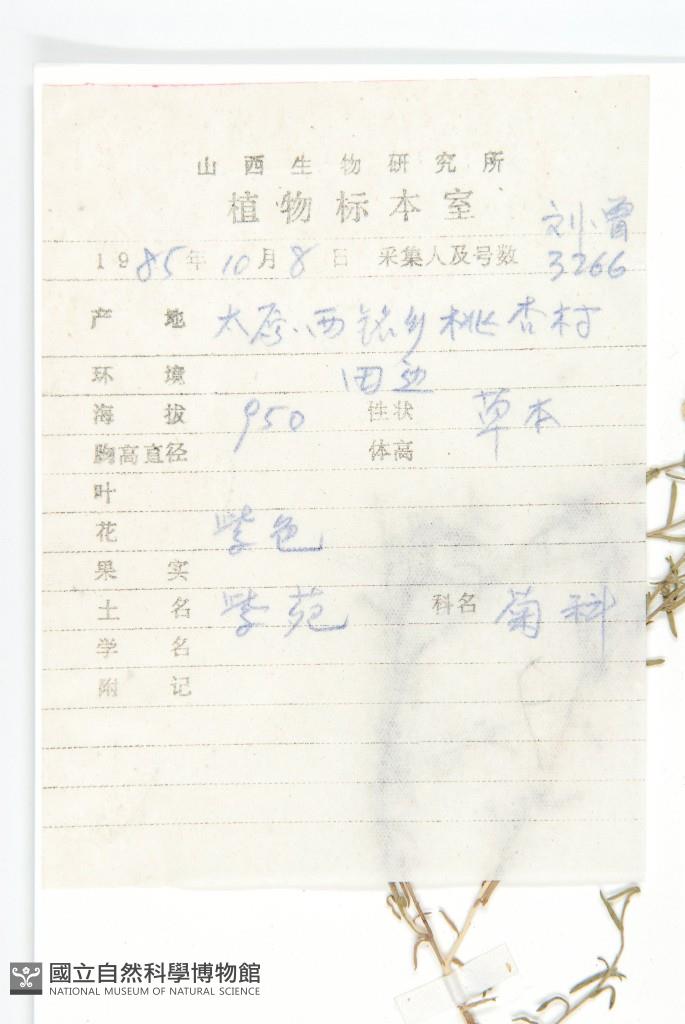 山西生物研究所
植物标本室
1985年10月8日 采集人及号数 刘、曾 3266
产地 太原、西铭乡桃杏村
环境 田边
海拔 950 性状 草本
胸高直径 体高
叶
花 紫色
果实
土名 紫苑 科名 菊科
学名
附记
國立自然科學博物館
NATIONAL MUSEUM OF NATURAL SCIENCE